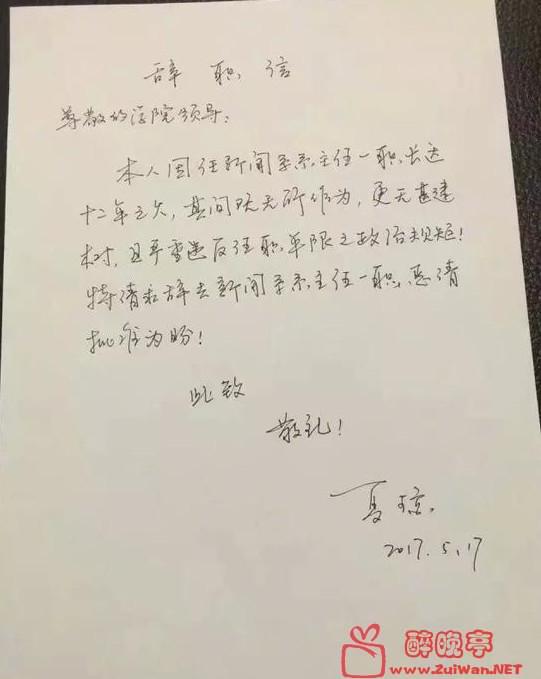 辞职信
尊敬的学院领导：
本人因任新闻系系主任一职长达
十二年之久，其间既无所作为，更无甚建
树，且严重违反任职年限之政治规矩！
特请求辞去新闻系系主任一职，恳请
批准为盼！
此致
敬礼！
夏琼
2017.5.17
醉晚亭
www.ZuiWan.NET